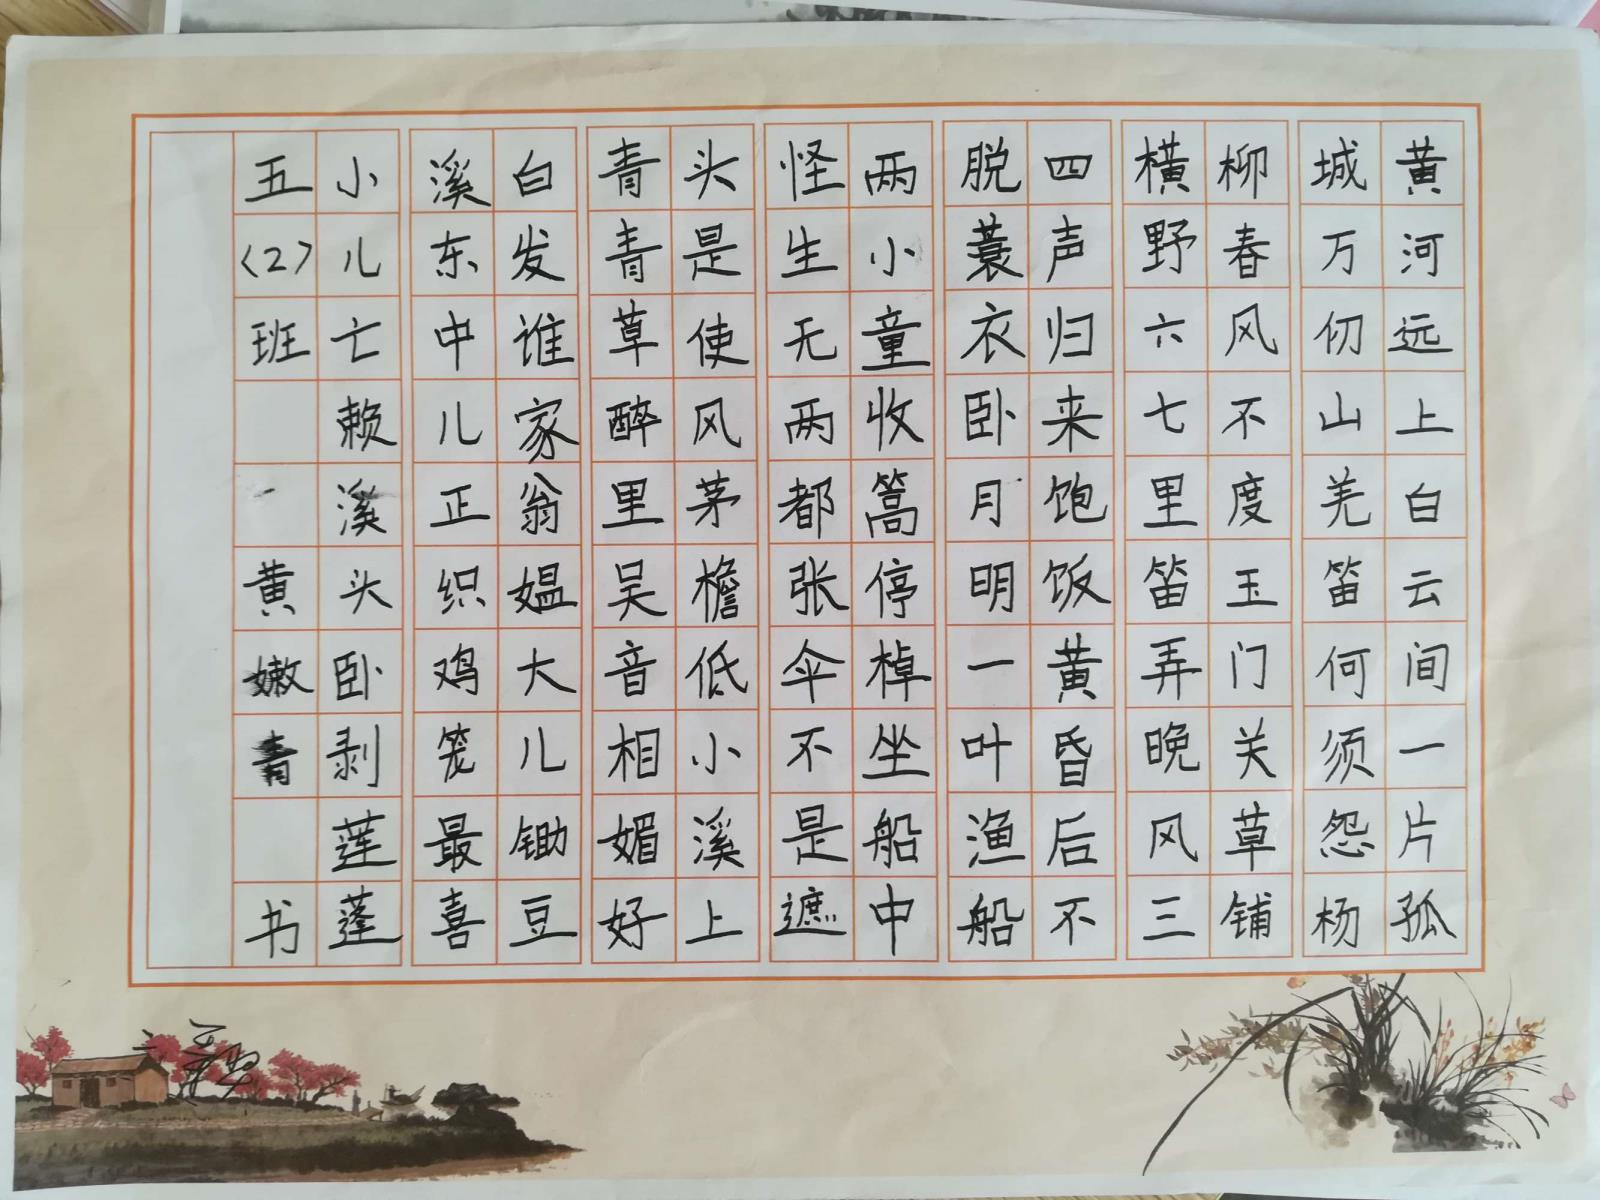 黄河远上白云间一片孤
城万仞山羌笛何须怨杨
柳春风不度玉门关草铺
横野六七里笛弄晚风三
四声归来饱饭黄昏后不
脱蓑衣卧月明一叶渔船
两小童收篙停棹坐船中
怪生无两都张伞不是遮
头是使风茅檐低小溪上
青青草醉里吴音相媚好
白发谁家翁媪大儿锄豆
溪东中儿正织鸡笼最喜
小儿亡赖溪头卧剥莲蓬
五(2)班 黄嫩青 书